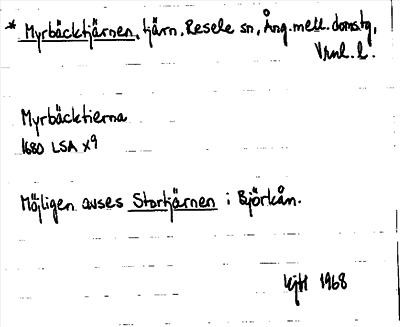 * Myrbäcktjärnen, tjärn, Resele sn, Ång. mell. domstg,
Vrnl. l.
Myrbäcktierna
1680 LSA X9
Möjligen avses Stortjärnen i Björkån.
1968